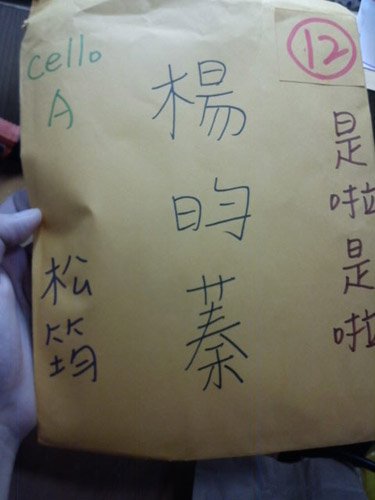 cello
A
⑫
楊昀蓁
是啦是啦
松筠